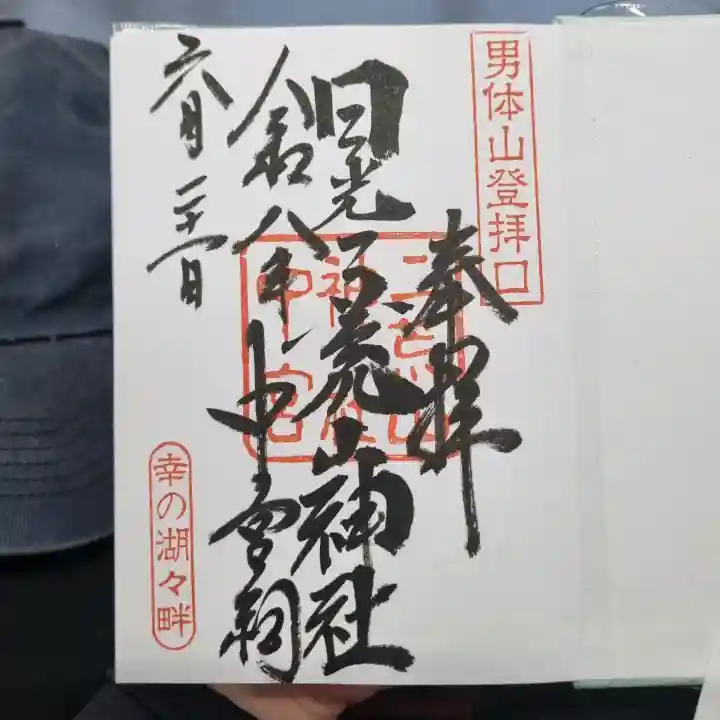 男体山登拝口
奉拝
日光二荒山神社
中宮祠
令和八年
六月二十一日
幸の湖々畔